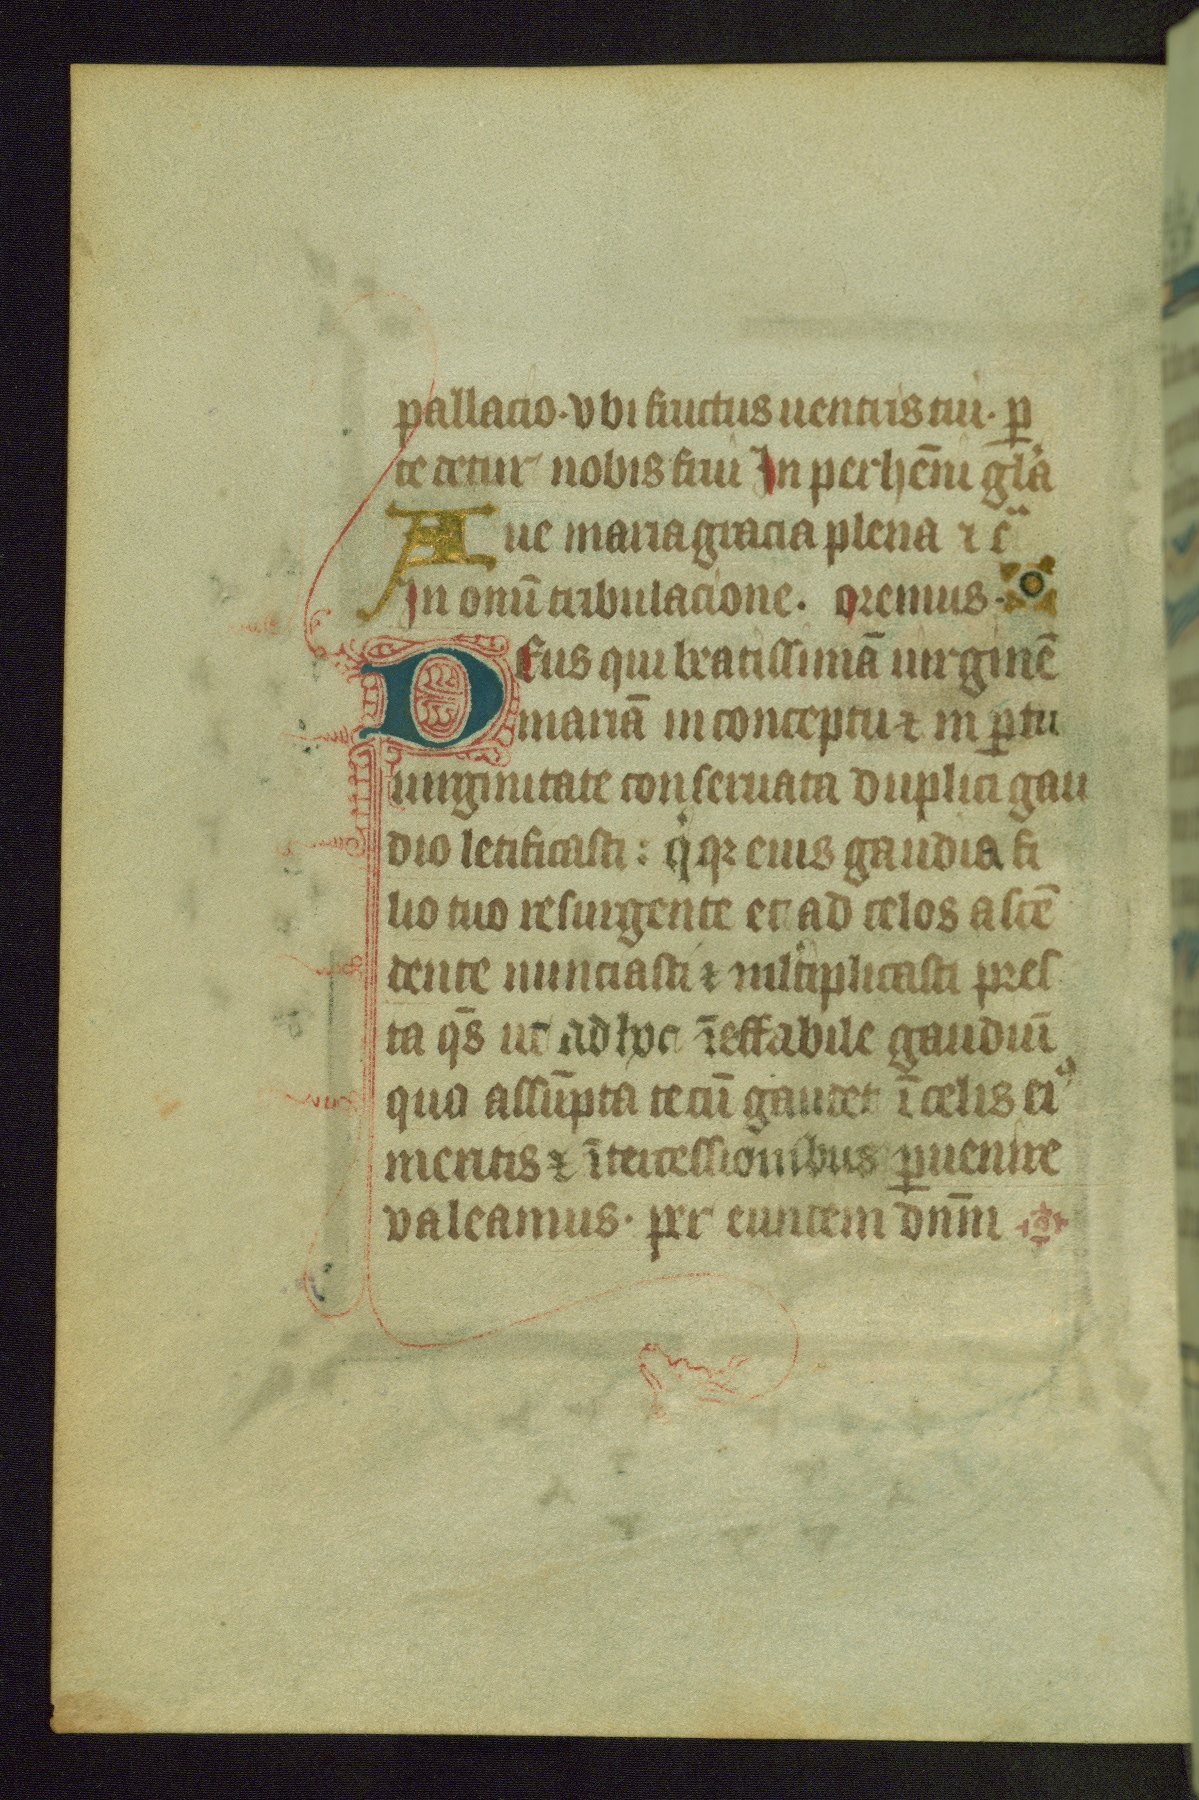 pallacio · vbi fructus uentris tui · ꝑ
te detur nobis frui In perhēni gl̄a
Aue maria gracia plena ⁊ cᷓ
In omni tribulacione . oremus ·
Deus qui beatissimā uirginē
mariā in conceptu ⁊ in ꝑtu
uirginitate conseruata duplici gau
dio letificasti : q̇ qꝛ eius gaudia fi
lio tuo resurgente et ad celos ascē
dente nunciasti ⁊ ml̄tiplicasti pres
ta qs̄ ut ad hoc īeffabile gaudiū
quo assūpta tecū gaudet ī celis eiꝰ
meritis ⁊ ītercessionibus ꝑuenire
valeamus · per eundem dnm̄